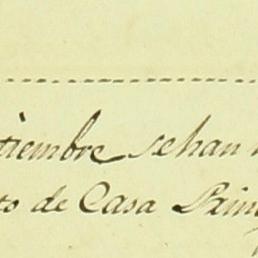 tiembre sehan
to de Casa